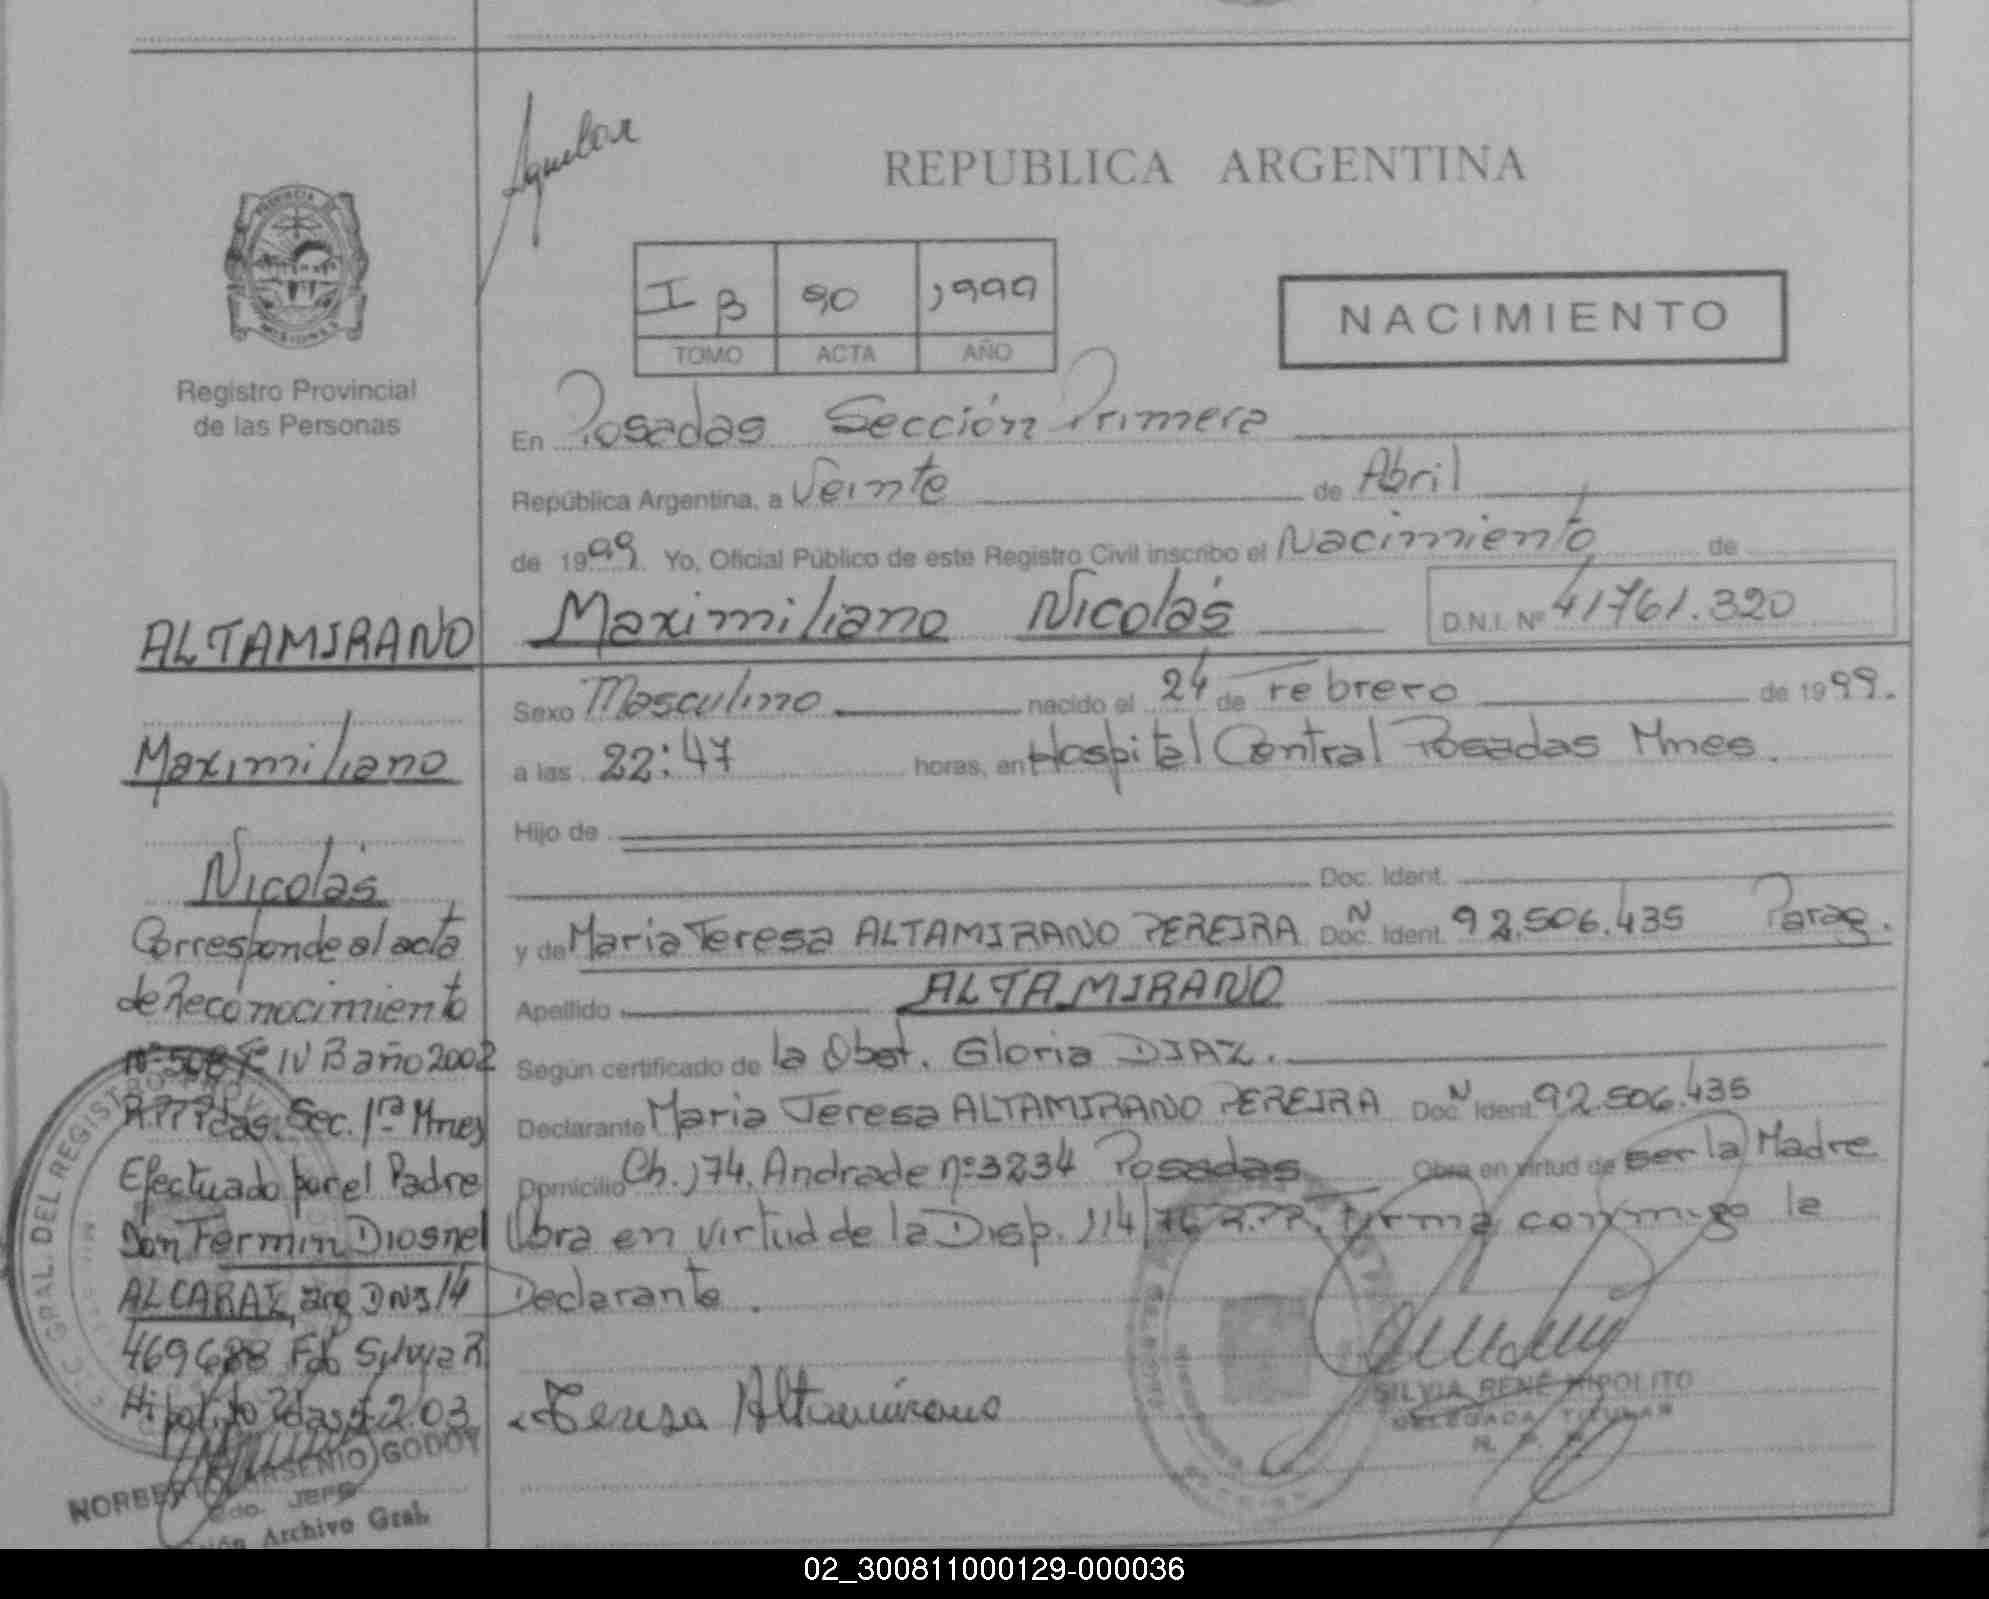 Aguilar
REPUBLICA ARGENTINA
I B 90 1999
TOMO ACTA AÑO
NACIMIENTO
Registro Provincial
de las Personas
En Posadas Sección Primera
República Argentina, a Veinte de Abril
de 1999. Yo, Oficial Público de este Registro Civil inscribo el Nacimiento de
Maximiliano Nicolás D.N.I. Nº 41761.320
Sexo Masculino nacido el 24 de Febrero de 1999.
a las 22:47 horas, en Hospital Central Posadas Mnes.
Hijo de
Doc. Ident.
y de Maria Teresa ALTAMIRANO PEREIRA Doc. N Ident. 92.506.435 Parag.
Apellido ALTAMIRANO
Según certificado de la Obst. Gloria DIAZ.
Declarante Maria Teresa ALTAMIRANO PEREIRA Doc. N Ident. 92.506.435
Domicilio Ch. 174. Andrade nº 3234 Posadas Obra en virtud de ser la Madre
Obra en virtud de la Disp. 114/76 R.P.P. Firma conmigo la
Declarante.
Teresa Altamirano
SILVIA RENÉ HIPOLITO
DELEGADA TITULAR
ALTAMIRANO
Maximiliano
Nicolás
Corresponde al acta
de Reconocimiento
Nº 508 Tº IV B año 2002
Sec. 1ra Mnes
Efectuado por el Padre
Don Fermin Diosnel
ALCARAZ, arg DNI 14
469688 Fdo Silvia R
Hipolito
NORBERTO ARSENIO GODOY
JEFE
Archivo Gral.
GRAL. DEL REGISTRO PROV
02_300811000129-000036